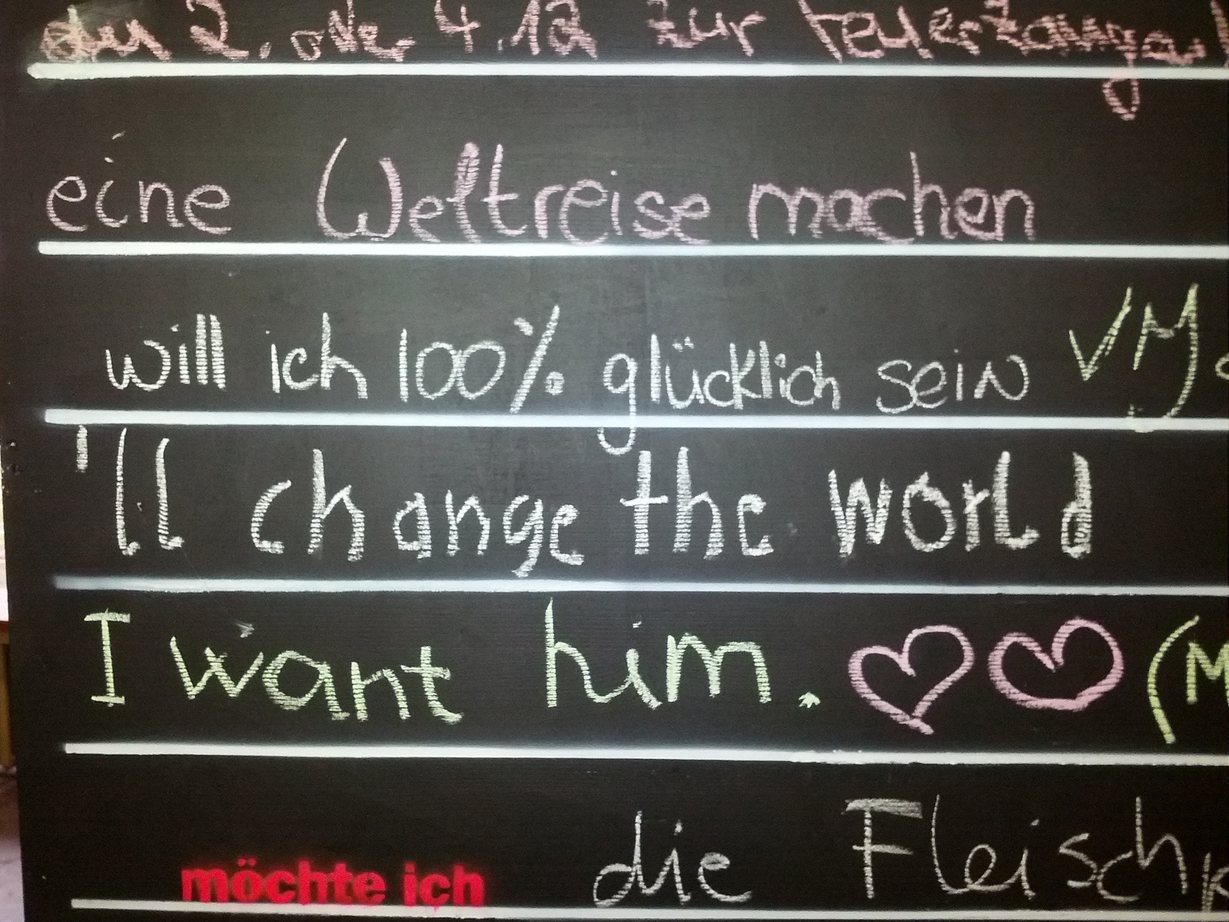 den 2. oder 4.12 zur Feuerzangen
eine Weltreise machen
will ich 100% glücklich sein
'll change the world
I want him. (M
möchte ich die Fleisch